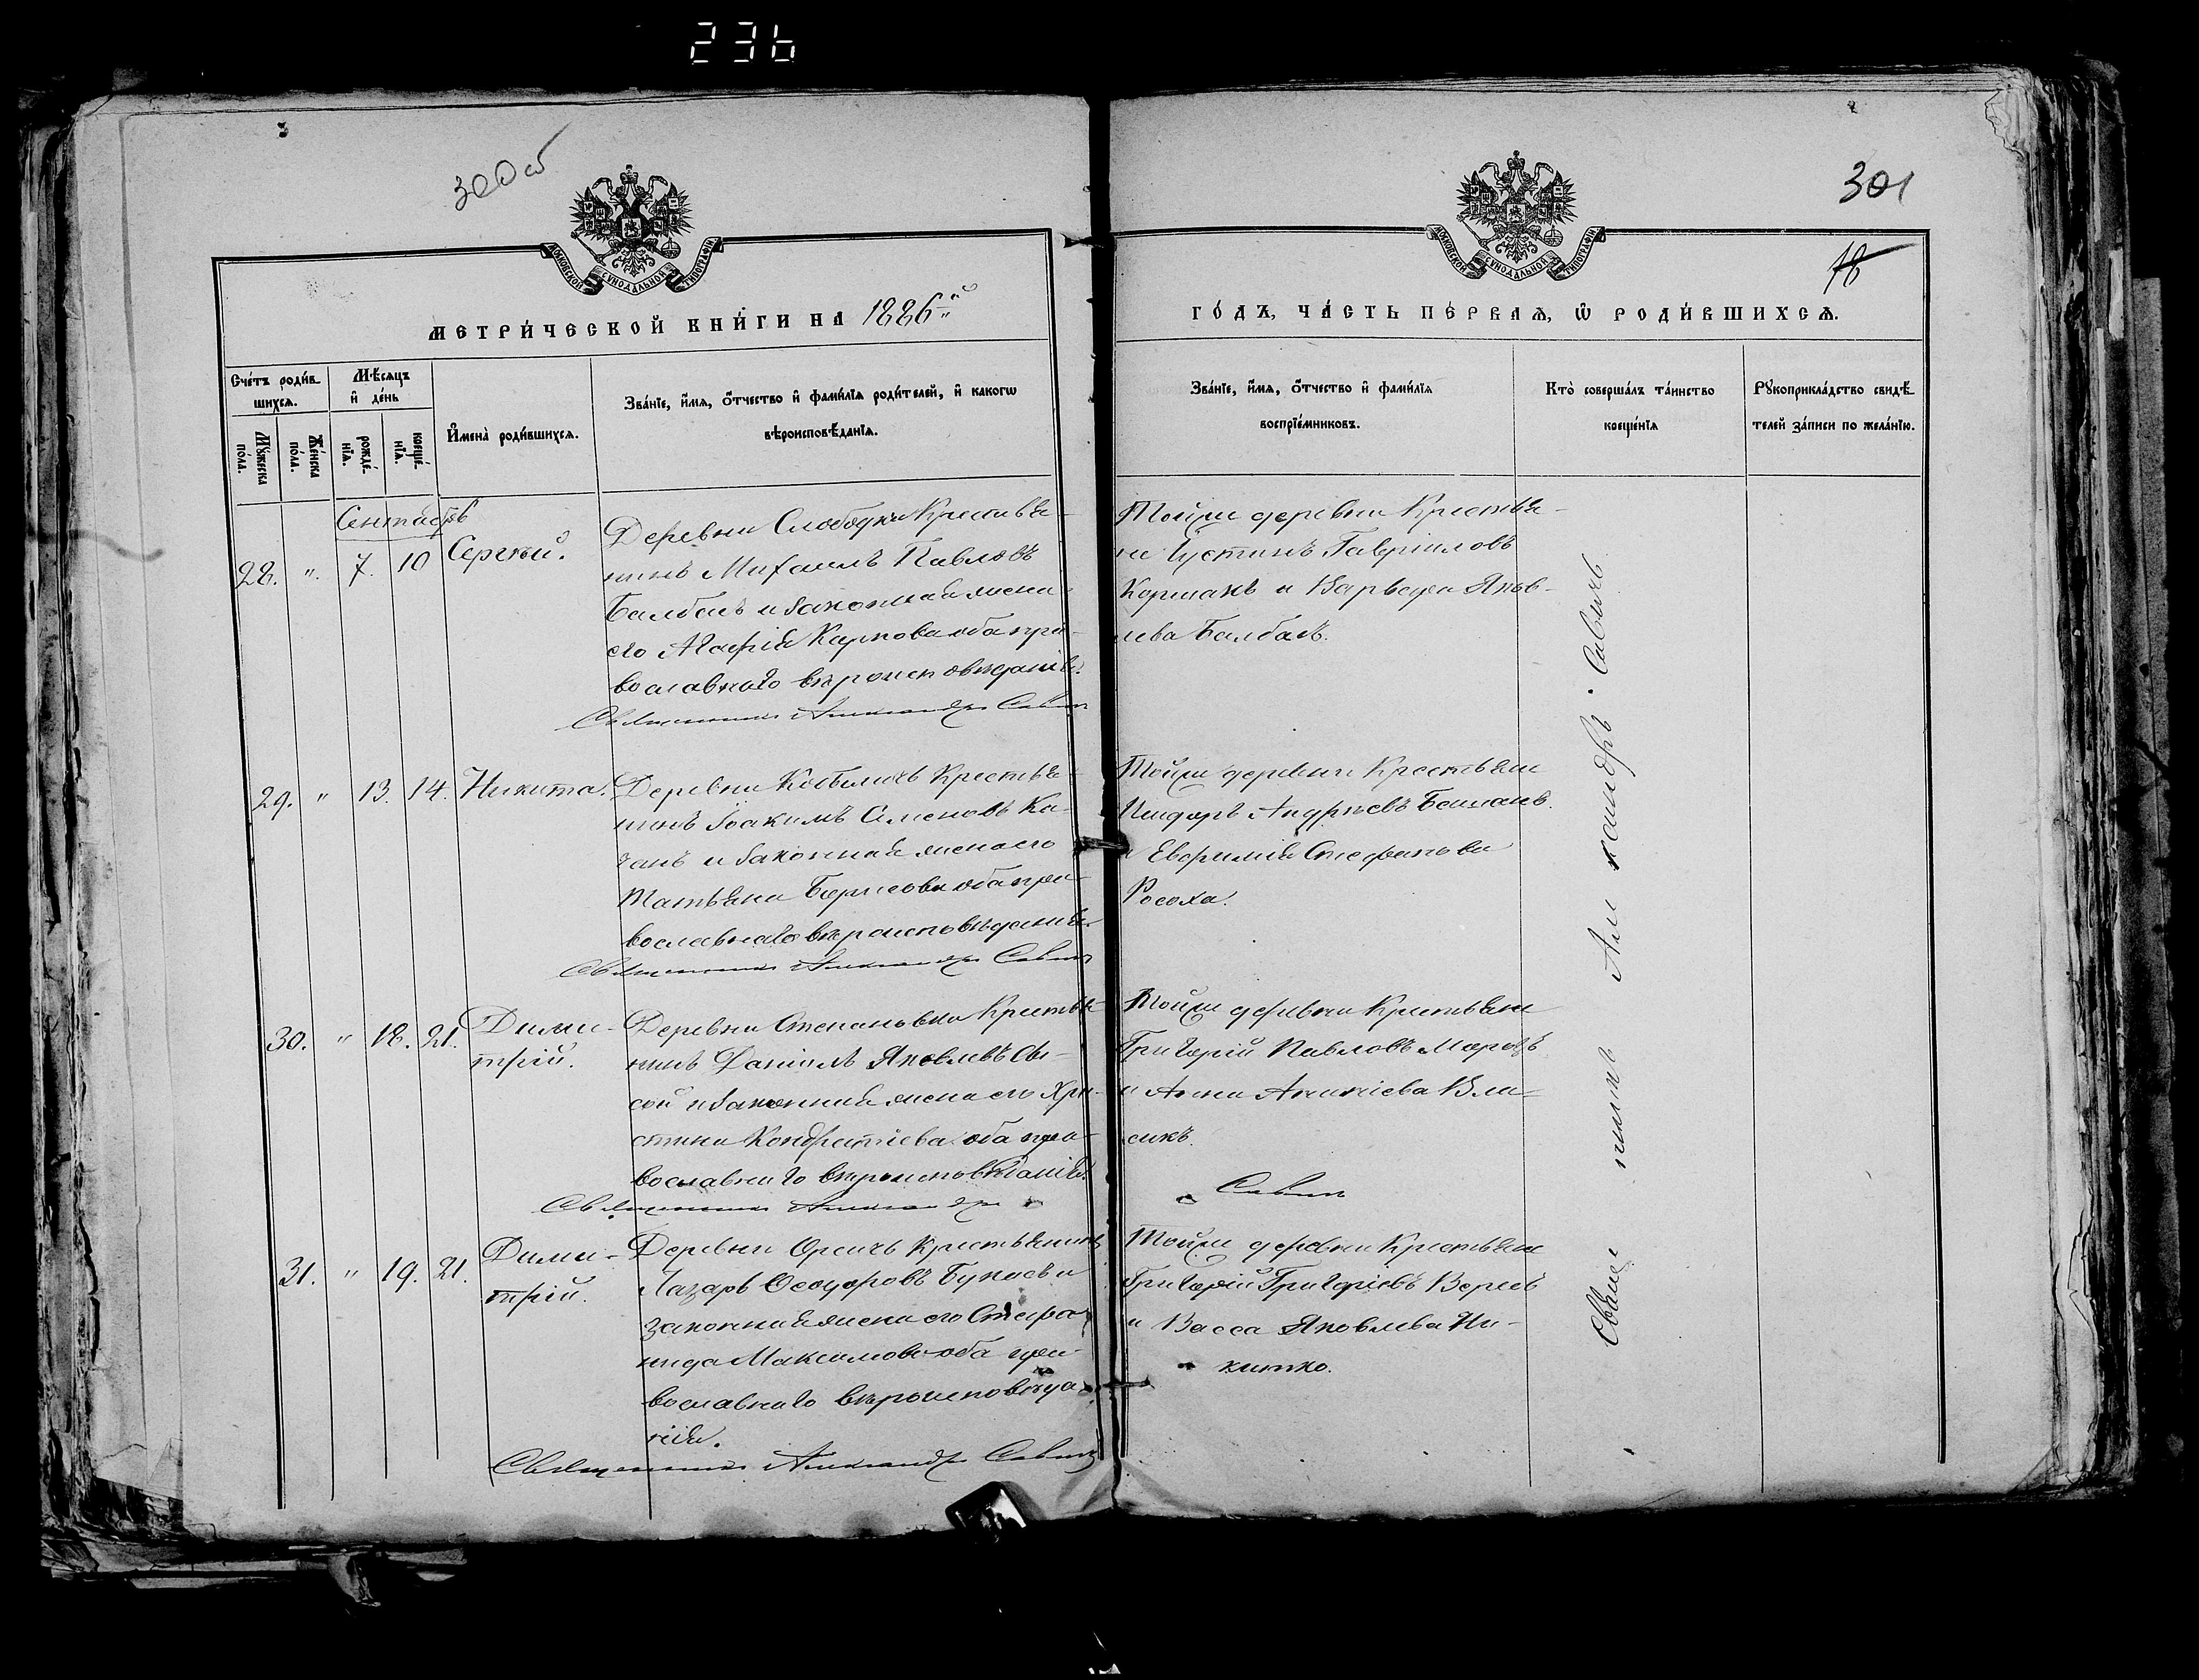 236
300 об
301
18
МОСКОВСКОЙ СѴНОДАЛЬНОЙ ТИПОГРАФІИ
МОСКОВСКОЙ СѴНОДАЛЬНОЙ ТИПОГРАФІИ
МЕТРИ́ЧЕСКОЙ КНИ́ГИ НА 1886й
ГО́ДЪ, ЧА́СТЬ ПЕ́РВАѦ, Ѿ РОДИ́ВШИХСѦ.
Сче́тъ роди́в-
шихсѧ.
Мꙋ́жеска по́ла.
Же́нска по́ла.
Мѣ́сѧцъ и҆ де́нь
рожде́-нїѧ.
креще́-нїѧ.
И҆мена̀ роди́вшихсѧ.
Зва́нїе, и҆́мѧ, о҆́тчество и҆ фами́лїѧ роди́телей, и҆ какогѡ
вѣроисповѣ́данїѧ.
Зва́нїе, и҆́мѧ, о҆́тчество и҆ фами́лїѧ
воспрїе́мниковъ.
Кто̀ соверша́лъ та́инство
креще́нїѧ
Рꙋкоприкла́дство свидѣ́-
телей за́писи по жела́нїю.
Сентябрь
28. " 7. 10 Сергѣй.
Деревни Слободки Крестья-
нинъ Михаилъ Павловъ
Балбасъ и законная жена
его Агафія Карпова оба пра-
вославнаго вѣроисповѣданія.
Священникъ Александръ Савичъ
Тойже деревни Крестья-
не Іустинъ Гавріиловъ
Коршакъ и Варвара Яков-
лева Балбасъ.
29. " 13. 14. Никита.
Деревни Кобыличъ Крестья-
нинъ Іоакимъ Семеновъ Ка-
чанъ и законная жена его
Татьяна Борисова оба пра-
вославнаго вѣроисповѣданія
Священникъ Александръ Савичъ
Тойже деревни Крестьяне
Исидоръ Андреевъ
и Евфимія Стефанова
Росоха.
30. " 18. 21. Дими-
трій.
Деревни Степановки Крестья-
нинъ Даніилъ Яковлевъ
и законная жена его Хри-
стина Кондратіева оба пра-
вославнаго вѣроисповѣданія.
Священникъ Александръ
Савичъ
Тойже деревни Крестьяне
Григорій Павловъ Морозъ
и Анна Ананіева Вла-
сикъ.
31. " 19. 21. Дими-
трій.
Деревни Орсичъ Крестьянинъ
Лазарь Ѳеодоровъ Букасъ и
законная жена его Стефа-
нида Максимова оба пра-
вославнаго вѣроисповѣда-
нія.
Священникъ Александръ Савичъ
Тойже деревни Крестьяне
Григорій Григоріевъ
и Васса Яковлева Ни-
китко.
Священникъ Александръ Савичъ